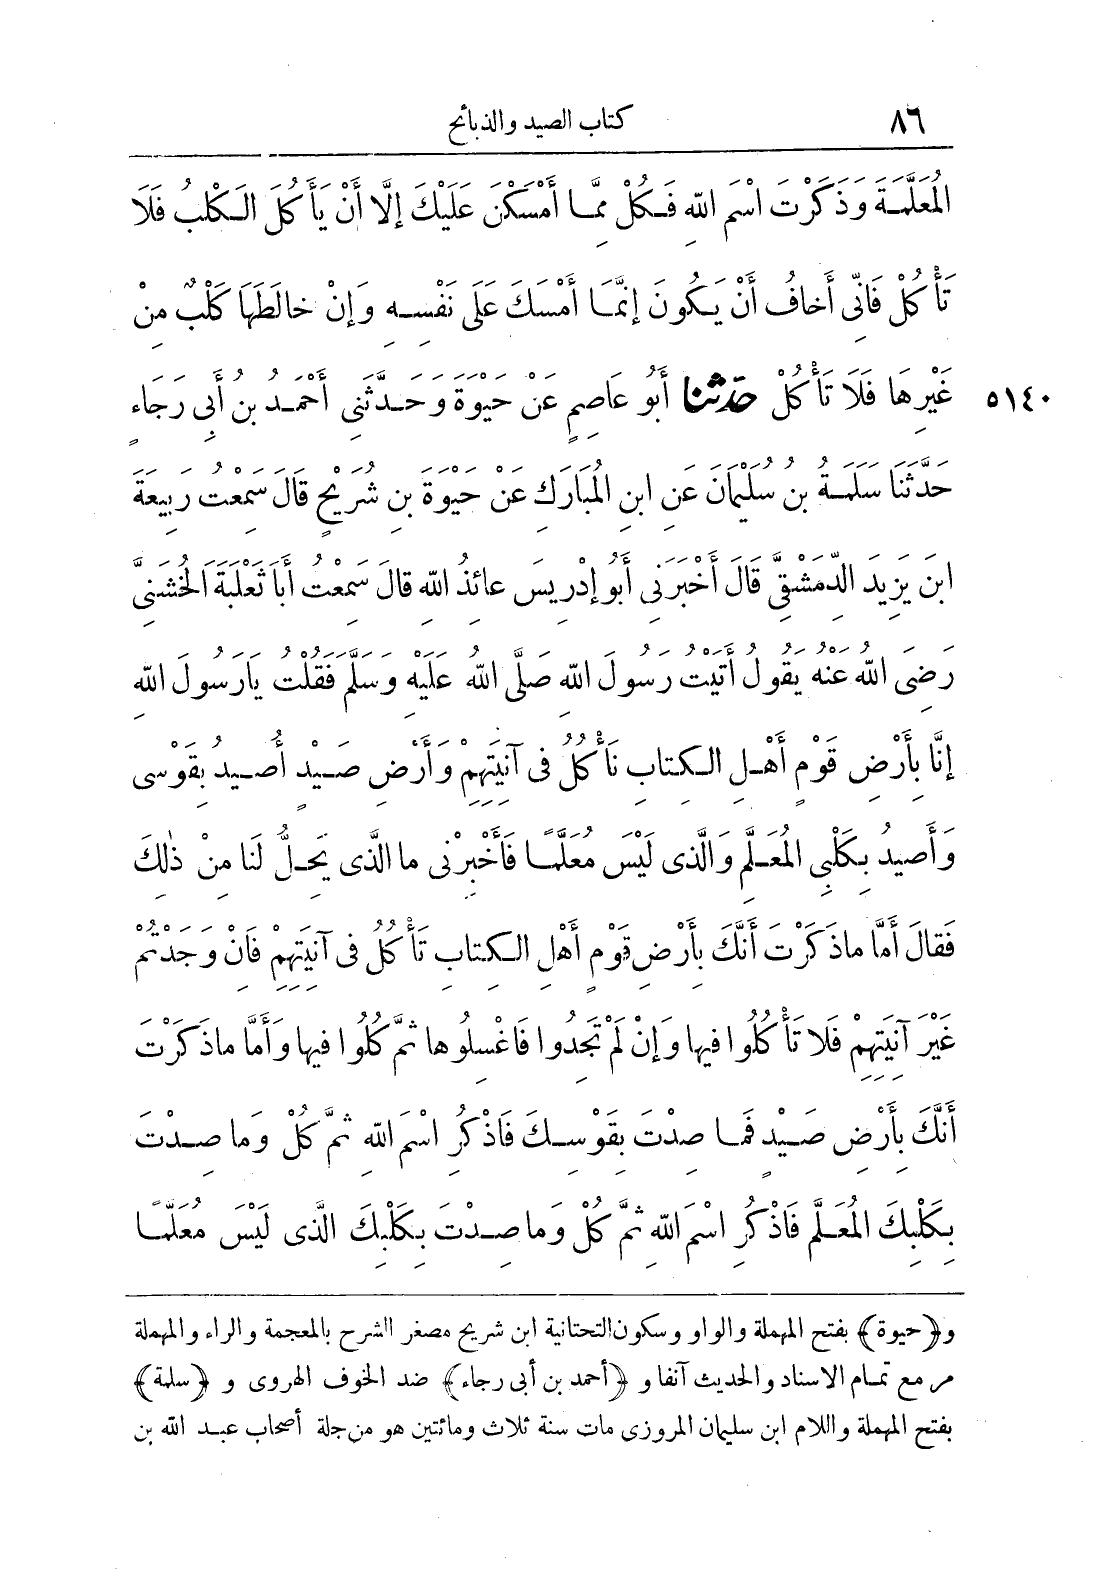 ٨٦ كتاب الصيد والذبائح
المُعَلَّمَةَ وَذَكَرْتَ اسْمَ اللهِ فَكُلْ مِمَّا أَمْسَكْنَ عَلَيْكَ إِلَّا أَنْ يَأْكُلَ الكَلْبُ فَلَا
تَأْكُلْ فَانِّى أَخافُ أَنْ يَكُونَ إِنَّمَا أَمْسَكَ عَلَى نَفْسِهِ وَإِنْ خالَطَهَا كَلْبٌ مِنْ
غَيْرِهَا فَلَا تَأْكُلْ حدّثنا أَبُو عَاصِمٍ عَنْ حَيْوَةَ وَحَدَّثَنِى أَحْمَدُ بنُ أَبِى رَجَاءٍ ٥١٤٠
حَدَّثَنَا سَلَمَةُ بنُ سُلَيْمَانَ عَنِ ابنِ المُبَارَكِ عَنْ حَيْوَةَ بنِ شُرَيْحٍ قالَ سَمِعْتُ رَبِيعَةَ
ابنَ يَزِيدَ الدِّمَشْقِىَّ قَالَ أَخْبَرَنِى أَبُو إِدْرِيسَ عائِذُ اللهِ قالَ سَمِعْتُ أَبَا ثَعْلَبَةَ الخُشَنِىَّ
رَضِىَ اللهُ عَنْهُ يَقُولُ أَتَيْتُ رَسُولَ اللهِ صَلَّى اللهُ عَلَيْهِ وَسَلَّمَ فَقُلْتُ يَارَسُولَ اللهِ
إِنَّا بِأَرْضِ قَوْمٍ أَهْلِ الكِتابِ نَأْكُلُ فِى آنِيَتِهِمْ وَأَرْضِ صَيْدٍ أَصِيدُ بِقَوْسِى
وَأَصِيدُ بِكَلْبِى المُعَلَّمِ وَالَّذِى لَيْسَ مُعَلَّمًا فَأَخْبِرْنِى ما الَّذِى يَحِلُّ لَنَا مِنْ ذٰلِكَ
فَقالَ أَمَّا ماذَكَرْتَ أَنَّكَ بِأَرْضِ قَوْمٍ أَهْلِ الكِتابِ تَأْكُلُ فِى آنِيَتِهِمْ فَانْ وَجَدْتُمْ
غَيْرَ آنِيَتِهِمْ فَلا تَأْكُلُوا فيها وَإِنْ لَمْ تَجِدُوا فَاغْسِلُوها ثُمَّ كُلُوا فيها وَأَمَّا ماذَكَرْتَ
أَنَّكَ بِأَرْضِ صَيْدٍ فَما صِدْتَ بِقَوْسِكَ فَاذْكُرِ اسْمَ اللهِ ثُمَّ كُلْ وَما صِدْتَ
بِكَلْبِكَ المُعَلَّمِ فَاذْكُرِ اسْمَ اللهِ ثُمَّ كُلْ وَما صِدْتَ بِكَلْبِكَ الَّذى لَيْسَ مُعَلَّمًا
و﴿حيوة﴾ بفتح المهملة والواو وسكون التحتانية ابن شريح مصغر الشرح بالمعجمة والراء والمهملة
مر مع تمام الاسناد والحديث آنفا و ﴿أحمد بن أبى رجاء﴾ ضد الخوف الهروى و ﴿سلمة﴾
بفتح المهملة واللام ابن سليمان المروزى مات سنة ثلاث ومائتين هو من جلة أصحاب عبد الله بن